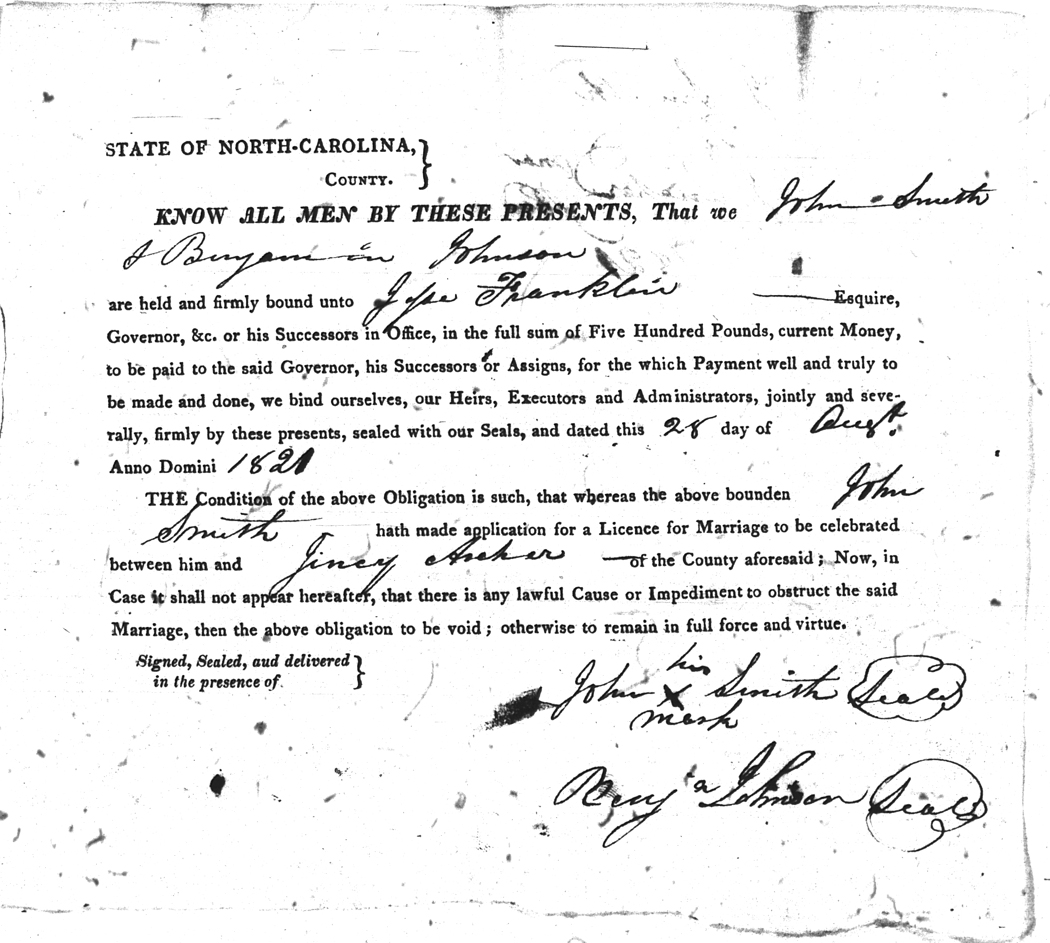 STATE OF NORTH-CAROLINA,
COUNTY.
KNOW ALL MEN BY THESE PRESENTS, That we John Smith
& Benjamin Johnson
are held and firmly bound unto Jesse Franklin Esquire,
Governor, &c. or his Successors in Office, in the full sum of Five Hundred Pounds, current Money,
to be paid to the said Governor, his Successors or Assigns, for the which Payment well and truly to
be made and done, we bind ourselves, our Heirs, Executors and Administrators, jointly and seve-
rally, firmly by these presents, sealed with our Seals, and dated this 28 day of Augt.
Anno Domini 1821
THE Condition of the above Obligation is such, that whereas the above bounden John
Smith hath made application for a Licence for Marriage to be celebrated
between him and Jincy Archer of the County aforesaid; Now, in
Case it shall not appear hereafter, that there is any lawful Cause or Impediment to obstruct the said
Marriage, then the above obligation to be void; otherwise to remain in full force and virtue.
Signed, Sealed, aud delivered
in the presence of
his
John X Smith Seal
mark
Benja Johnson Seal